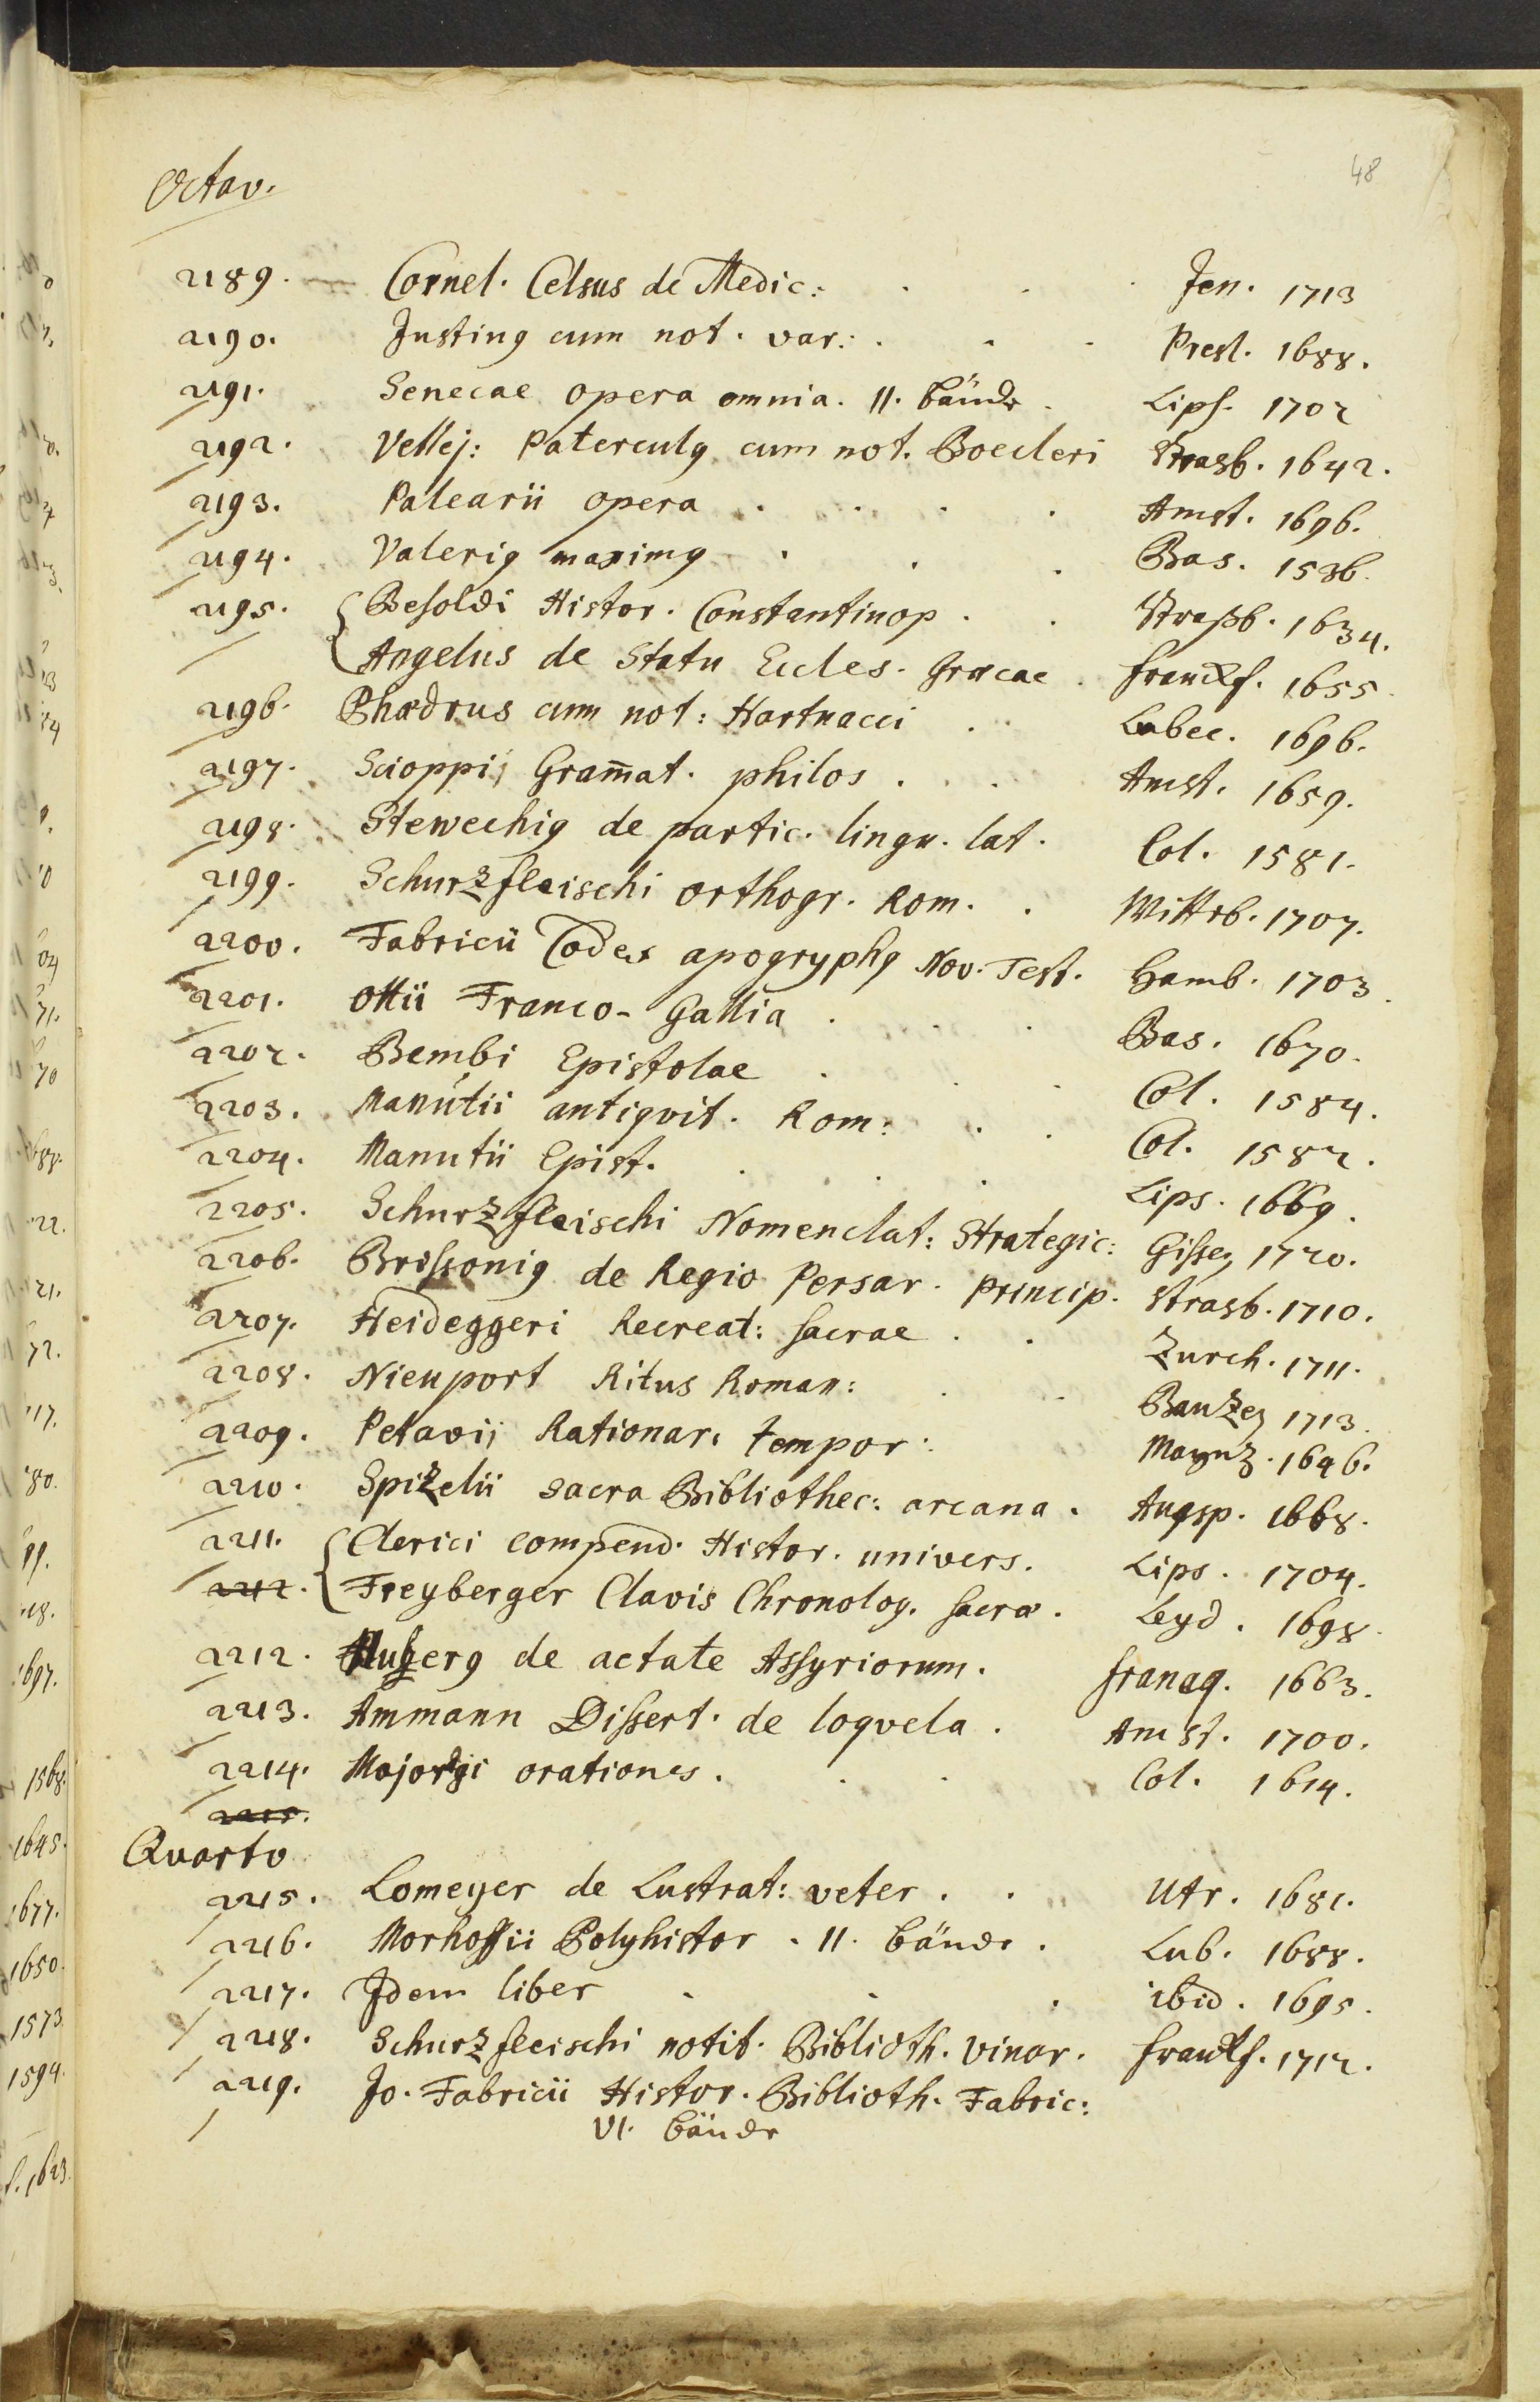 48
Octav.
2189. Cornel. Celsus de Medic: Jen. 1713
2190. Justing cum not. var: Presl. 1688.
2191. Senecae opera omnia. II. bände Lips. 1702
2192. Vellej: Paterculg cum not. Boecleri Strasb. 1642.
2193. Palearii opera Amst. 1696.
2194. Valerig maximg Bas. 1536.
2195. Besoldi Histor. Constantinop. Straßb. 1634.
Angelus de Statu Eccles. Græcae Franckf. 1655
2196. Phædrus cum not: Hartnacci Lubec. 1696.
2197. Scioppij Gram̄at. philos. Amst. 1659.
2198. Stewechig de partic. lingu. lat. Col. 1581.
2199. Schurzfleischi orthogr. Rom. Wittb. 1707.
2200. Fabricii Codex apogryphg Nov. Test. Hamb. 1703.
2201. Ottii Franco-Gallia Bas. 1670.
2202. Bembi Epistolae Col. 1584.
2203. Manutii antiqvit. Rom: Col. 1582.
2204. Manutii Epist. Lips. 1669.
2205. Schurzfleischi Nomenclat: Strategic: Gissen 1720.
2206. Brissonig de Regio Persar. Princip. Strasb. 1710.
2207. Heideggeri Recreat: sacrae Zurch. 1711.
2208. Nieuport Ritus Roman: Bauzen 1713.
2209. Petavij Rationar. tempor: Maynz. 1646.
2210. Spizelii sacra Bibliothec: arcana. Augsp. 1668.
2211. Clerici compend. Histor. univers. Lips. 1704.
2212. Freyberger Clavis Chronolog. sacræ. Leyd. 1698.
2212. de aetate Assyriorum. Franeq. 1663.
2213. Ammann Dissert. de loqvela. Amst. 1700.
2214. Majorgi orationes. Col. 1614.
2215.
Quarto
2215. Lomeyer de Lustrat: veter. Utr. 1681.
2216. Morhofii Polyhistor. II. bände. Lub. 1688.
2217. Idem liber ibid. 1695.
2218. Schurzfleischi notit. Biblioth. Vinar. Franckf. 1712.
2219. Jo. Fabricii Histor. Biblioth. Fabric:
VI. bände